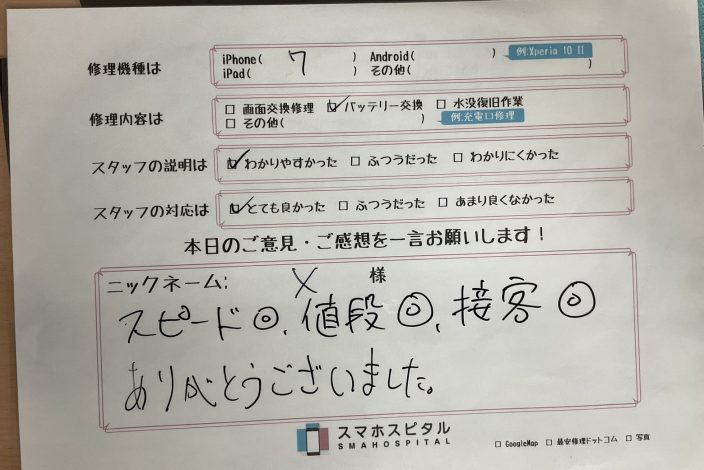 修理機種は
iPhone( 7 ) Android( ) 例:Xperia 10 II
iPad( ) その他( )
修理内容は
□ 画面交換修理 ☑ バッテリー交換 □ 水没復旧作業
□ その他( ) 例:充電口修理
スタッフの説明は ☑ わかりやすかった □ ふつうだった □ わかりにくかった
スタッフの対応は ☑ とても良かった □ ふつうだった □ あまり良くなかった
本日のご意見・ご感想を一言お願いします!
ニックネーム: X 様
スピード◎、値段◎、接客◎
ありがとうございました。
スマホスピタル
SMAHOSPITAL
□ GoogleMap □ 最安修理ドットコム □ 写真